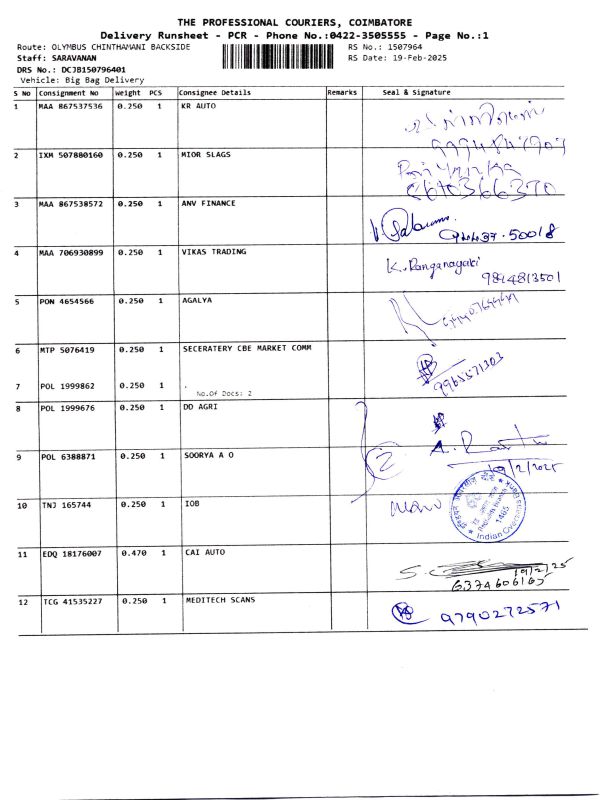 THE PROFESSIONAL COURIERS, COIMBATORE
Delivery Runsheet - PCR - Phone No.:0422-3505555 - Page No.:1
Route: OLYMBUS CHINTHAMANI BACKSIDE RS No.: 1507964
Staff: SARAVANAN RS Date: 19-Feb-2025
DRS No.: DCJB150796401
Vehicle: Big Bag Delivery
S No Consignment No Weight PCS Consignee Details Remarks Seal & Signature
1 MAA 867537536 0.250 1 KR AUTO
2 IXM 507880160 0.250 1 MIOR SLAGS
3 MAA 867538572 0.250 1 ANV FINANCE
94437-50018
4 MAA 706930899 0.250 1 VIKAS TRADING K. Ranganayaki
9894813501
5 PON 4654566 0.250 1 AGALYA
6 MTP 5076419 0.250 1 SECERATERY CBE MARKET COMM
9965571303
7 POL 1999862 0.250 1 .
No.Of Docs: 2
8 POL 1999676 0.250 1 DD AGRI
9 POL 6388871 0.250 1 SOORYA A O 2
19/2/2025
10 TNJ 165744 0.250 1 IOB
1465
Indian Overseas Bank
11 EDQ 18176007 0.470 1 CAI AUTO
19/2/25
6374606165
12 TCG 41535227 0.250 1 MEDITECH SCANS
9790272571